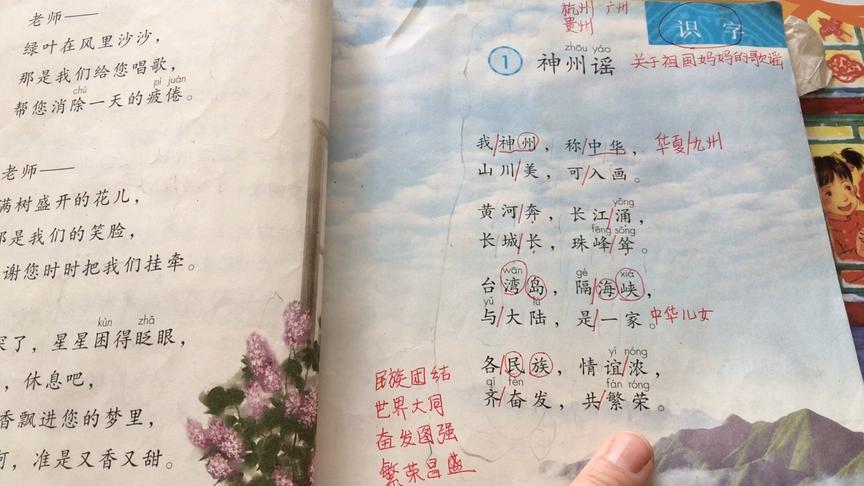 老师——
绿叶在风里沙沙,
那是我们给您唱歌,
chú pí juàn
帮您消除一天的疲倦。
老师——
满树盛开的花儿,
那是我们的笑脸,
谢您时时把我们挂牵。
kùn zhǎ
哭了,星星困得眨眼,
,休息吧,
香飘进您的梦里,
,准是又香又甜。
杭州 广州
贵州
识字
zhōu yáo
1 神州谣
关于祖国妈妈的歌谣
我/神州,称/中华, 华夏/九州
山川/美,可/入画。
yǒng
黄河/奔,长江/涌,
fēng sǒng
长城/长,珠峰/耸。
wān gé xiá
台湾岛,隔/海峡,
yǔ lù
与/大陆,是/一家。中华儿女
yì nóng
各民族,情谊浓,
qí fèn fán róng
齐/奋发,共/繁荣。
民族团结
世界大同
奋发图强
繁荣昌盛